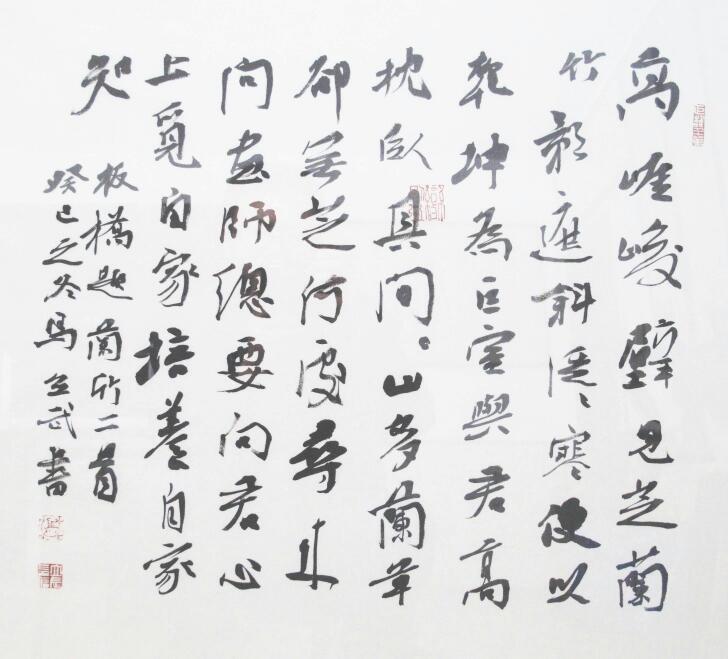 高崖峻壁見芝蘭
竹影遮斜寒便以
乾坤為巨室與君高
枕臥其間。山多蘭草
卻無芝何處尋來
問畫師總要向君心
上覓自家培養自家
知
板橋題蘭竹二首
癸巳之冬馬立武書